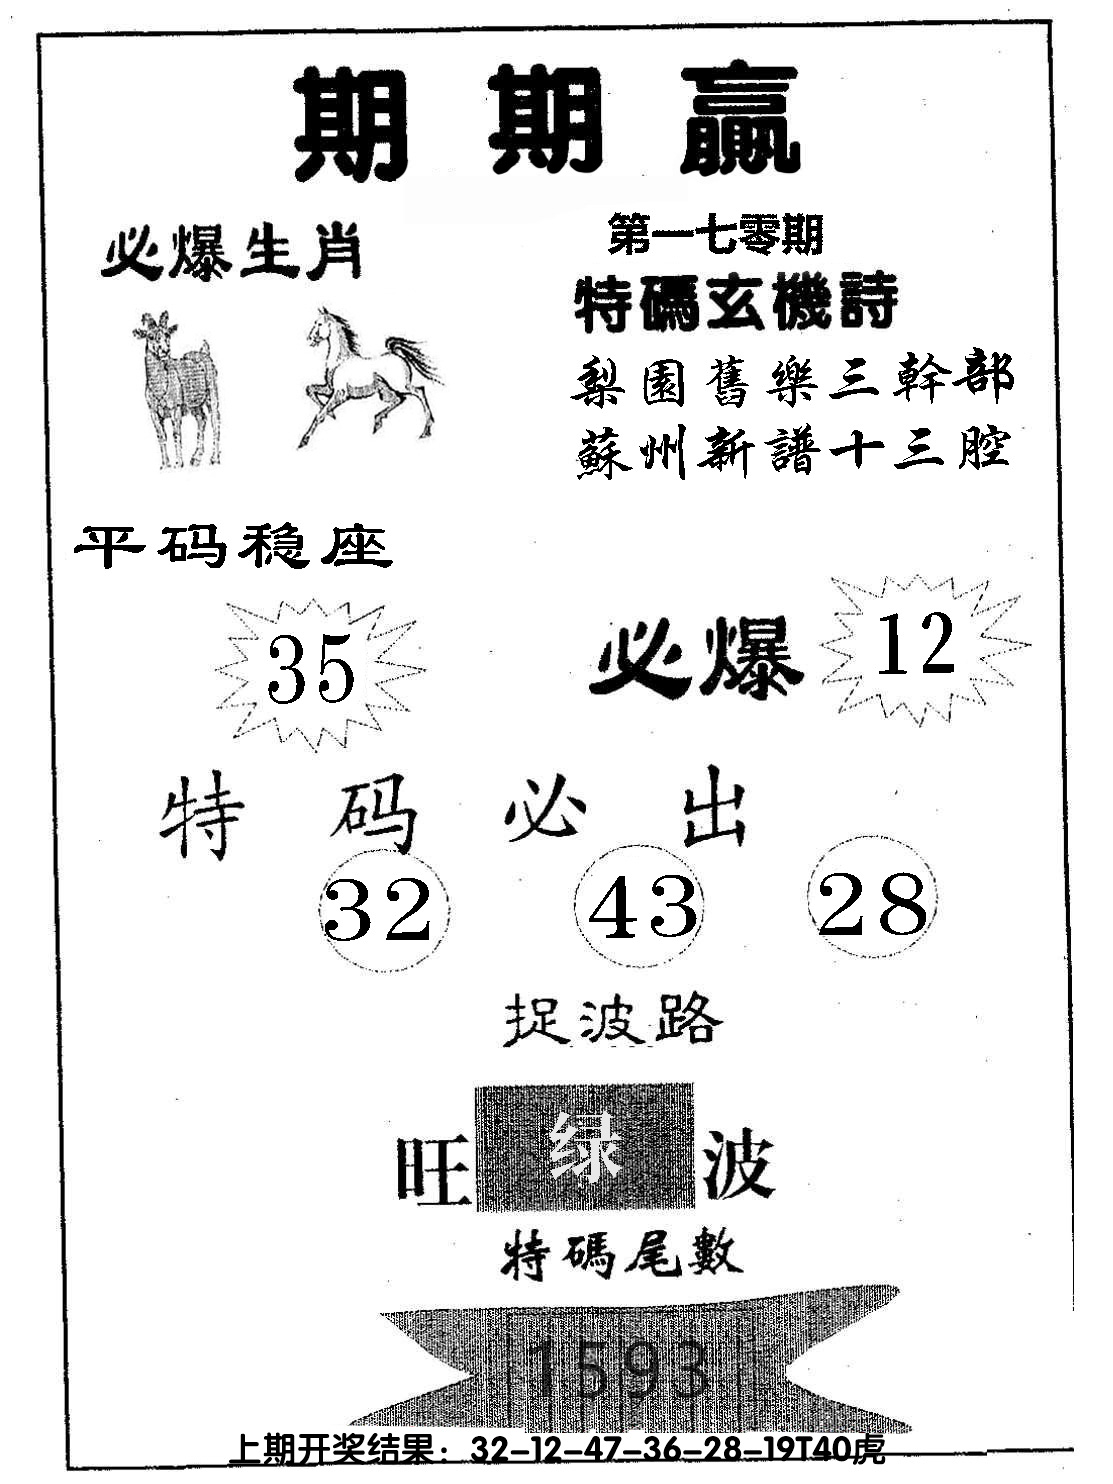 期期赢
必爆生肖
第一七零期
特碼玄機詩
梨園舊樂三幹部
蘇州新譜十三腔
平码稳座
35
必爆 12
特码必出
32 43 28
捉波路
旺 绿 波
特碼尾數
1593
上期开奖结果：32-12-47-36-28-19T40虎